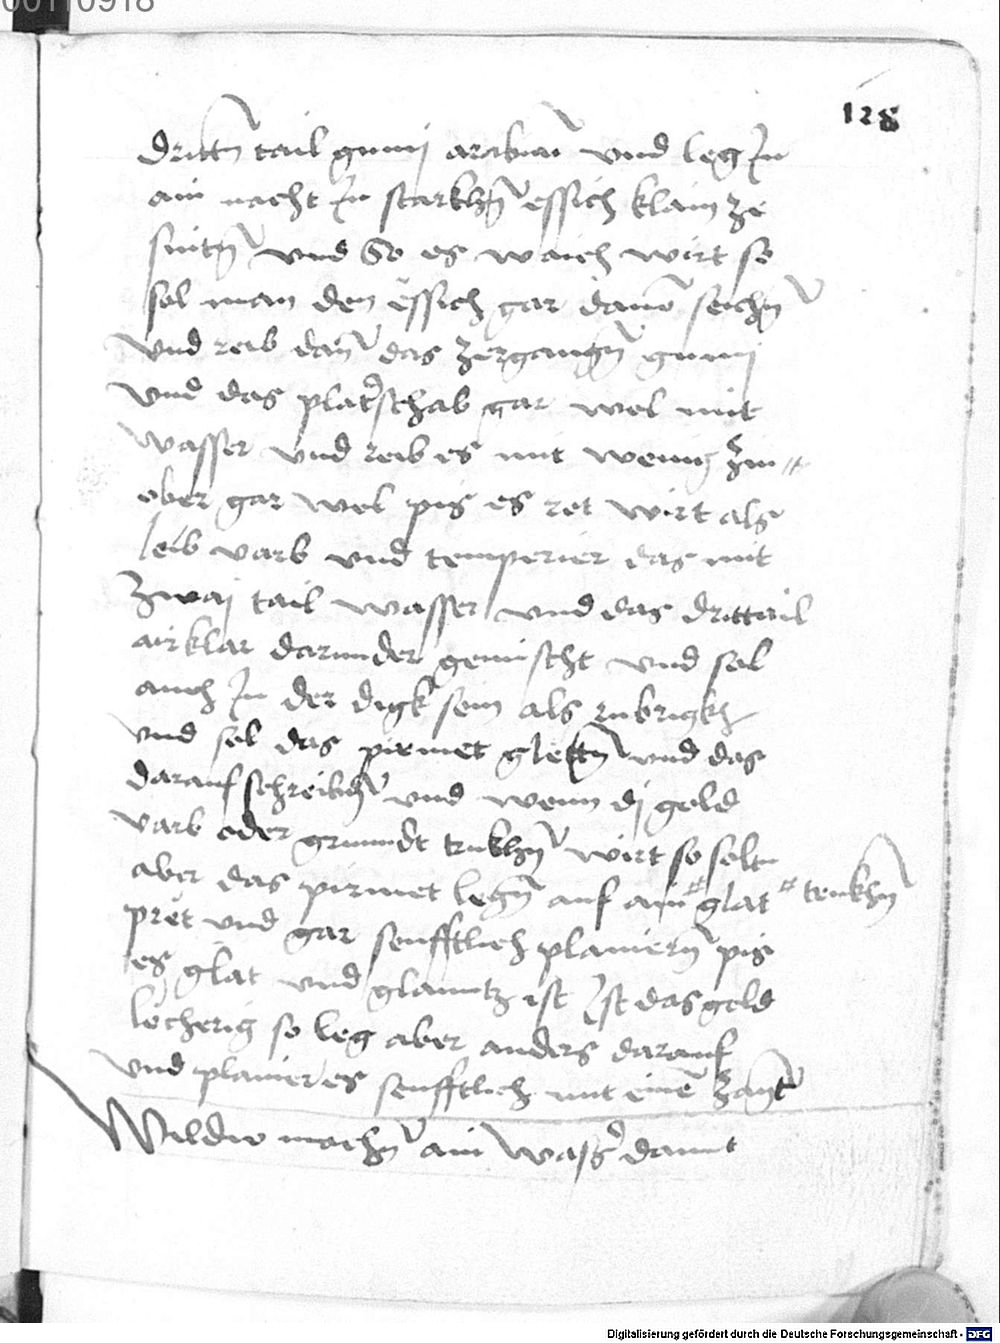 00110918
128
dritn tail gumi arabicu vnd leg In
ain nacht In starkhn essich klain ze
snitn vnd So es waich wirt so
sol man den essich gar dauon seichn
vnd reib dan das zergangn gumi
vnd das platerschab gar wol mit
wasser vnd reib es mit wenig zin
ober gar wol pis es rot wirt als
leib varb vnd temperier das mit
zwai tail wasser vnd das drittail
airklar darunder gemischt vnd sol
auch In der digk sein als rubrigkh
vnd sol das pirmet gletn vnd das
darauf schreibn vnd wenn di gold
varb oder grundt trukhn wirt so soltu
aber das pirmet legn auf ain glat trukhn
pret vnd gar senfftlich planiern pis
es glat vnd glanntz ist Ist das gold
löcherig so leg aber anders darauf
vnd planier es senfftlich mit eine zant
Wildu machn ain wasser damit
Digitalisierung gefördert durch die Deutsche Forschungsgemeinschaft - DFG